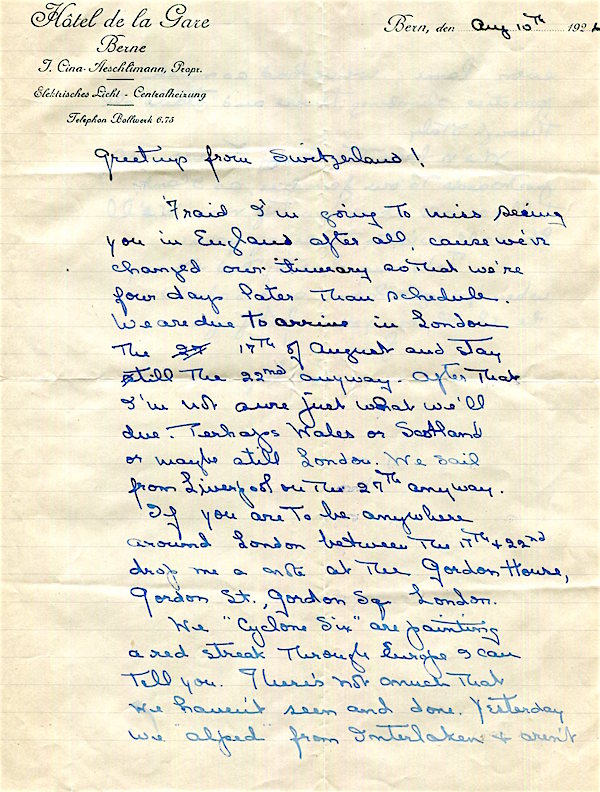 Hôtel de la Gare
Berne
J. Cina-Aeschlimann, Propr.
Elektrisches Licht - Centralheizung
Telephon Bollwerk 6.75
Bern, den Aug 10th 192
Greetings from Switzerland!
'Fraid I'm going to miss seeing
you in England after all, cause we've
changed our itinerary so that we're
four days later than schedule.
We are due to arrive in London
the 17th of August and stay
still the 22nd anyway. After that
I'm not sure just what we'll
due. Perhaps Wales or Scotland
or maybe still London. We sail
from Liverpool on the 27th anyway.
If you are to be anywhere
around London between the 17th & 22nd
drop me a note at the Gordon House,
Gordon St., Gordon Sq. London.
We "Cyclone Six" are painting
a red streak through Europe I can
tell you. There's not much that
we haven't seen and done. Yesterday
we "alped" from Interlaken & aren't